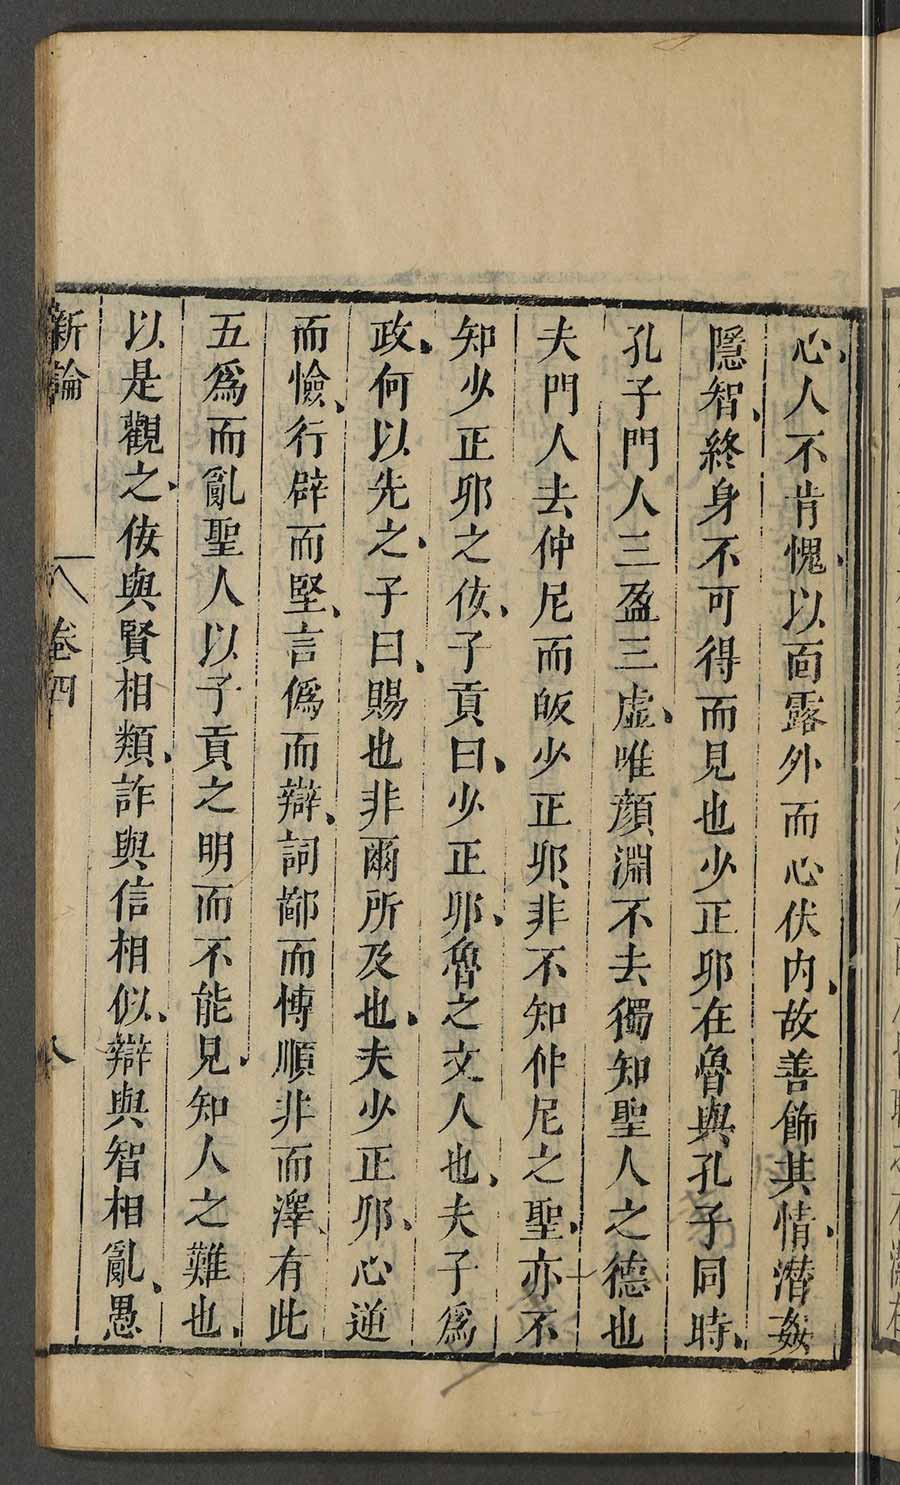 心人不肯愧以面露外而心伏内故善飾其情潜姦
隱智終身不可得而見也少正卯在魯與孔子同時
孔子門人三盈三虚唯顔淵不去獨知聖人之德也
夫門人去仲尼而皈少正卯非不知仲尼之聖亦不
知少正卯之佞子貢曰少正卯魯之文人也夫子爲
政何以先之子曰賜也非爾所及也夫少正卯心逆
而憸行辟而堅言僞而辯詞鄙而愽順非而澤有此
五爲而亂聖人以子貢之明而不能見知人之難也
以是觀之佞與賢相類詐與信相似辯與智相亂愚
新論 卷四 八